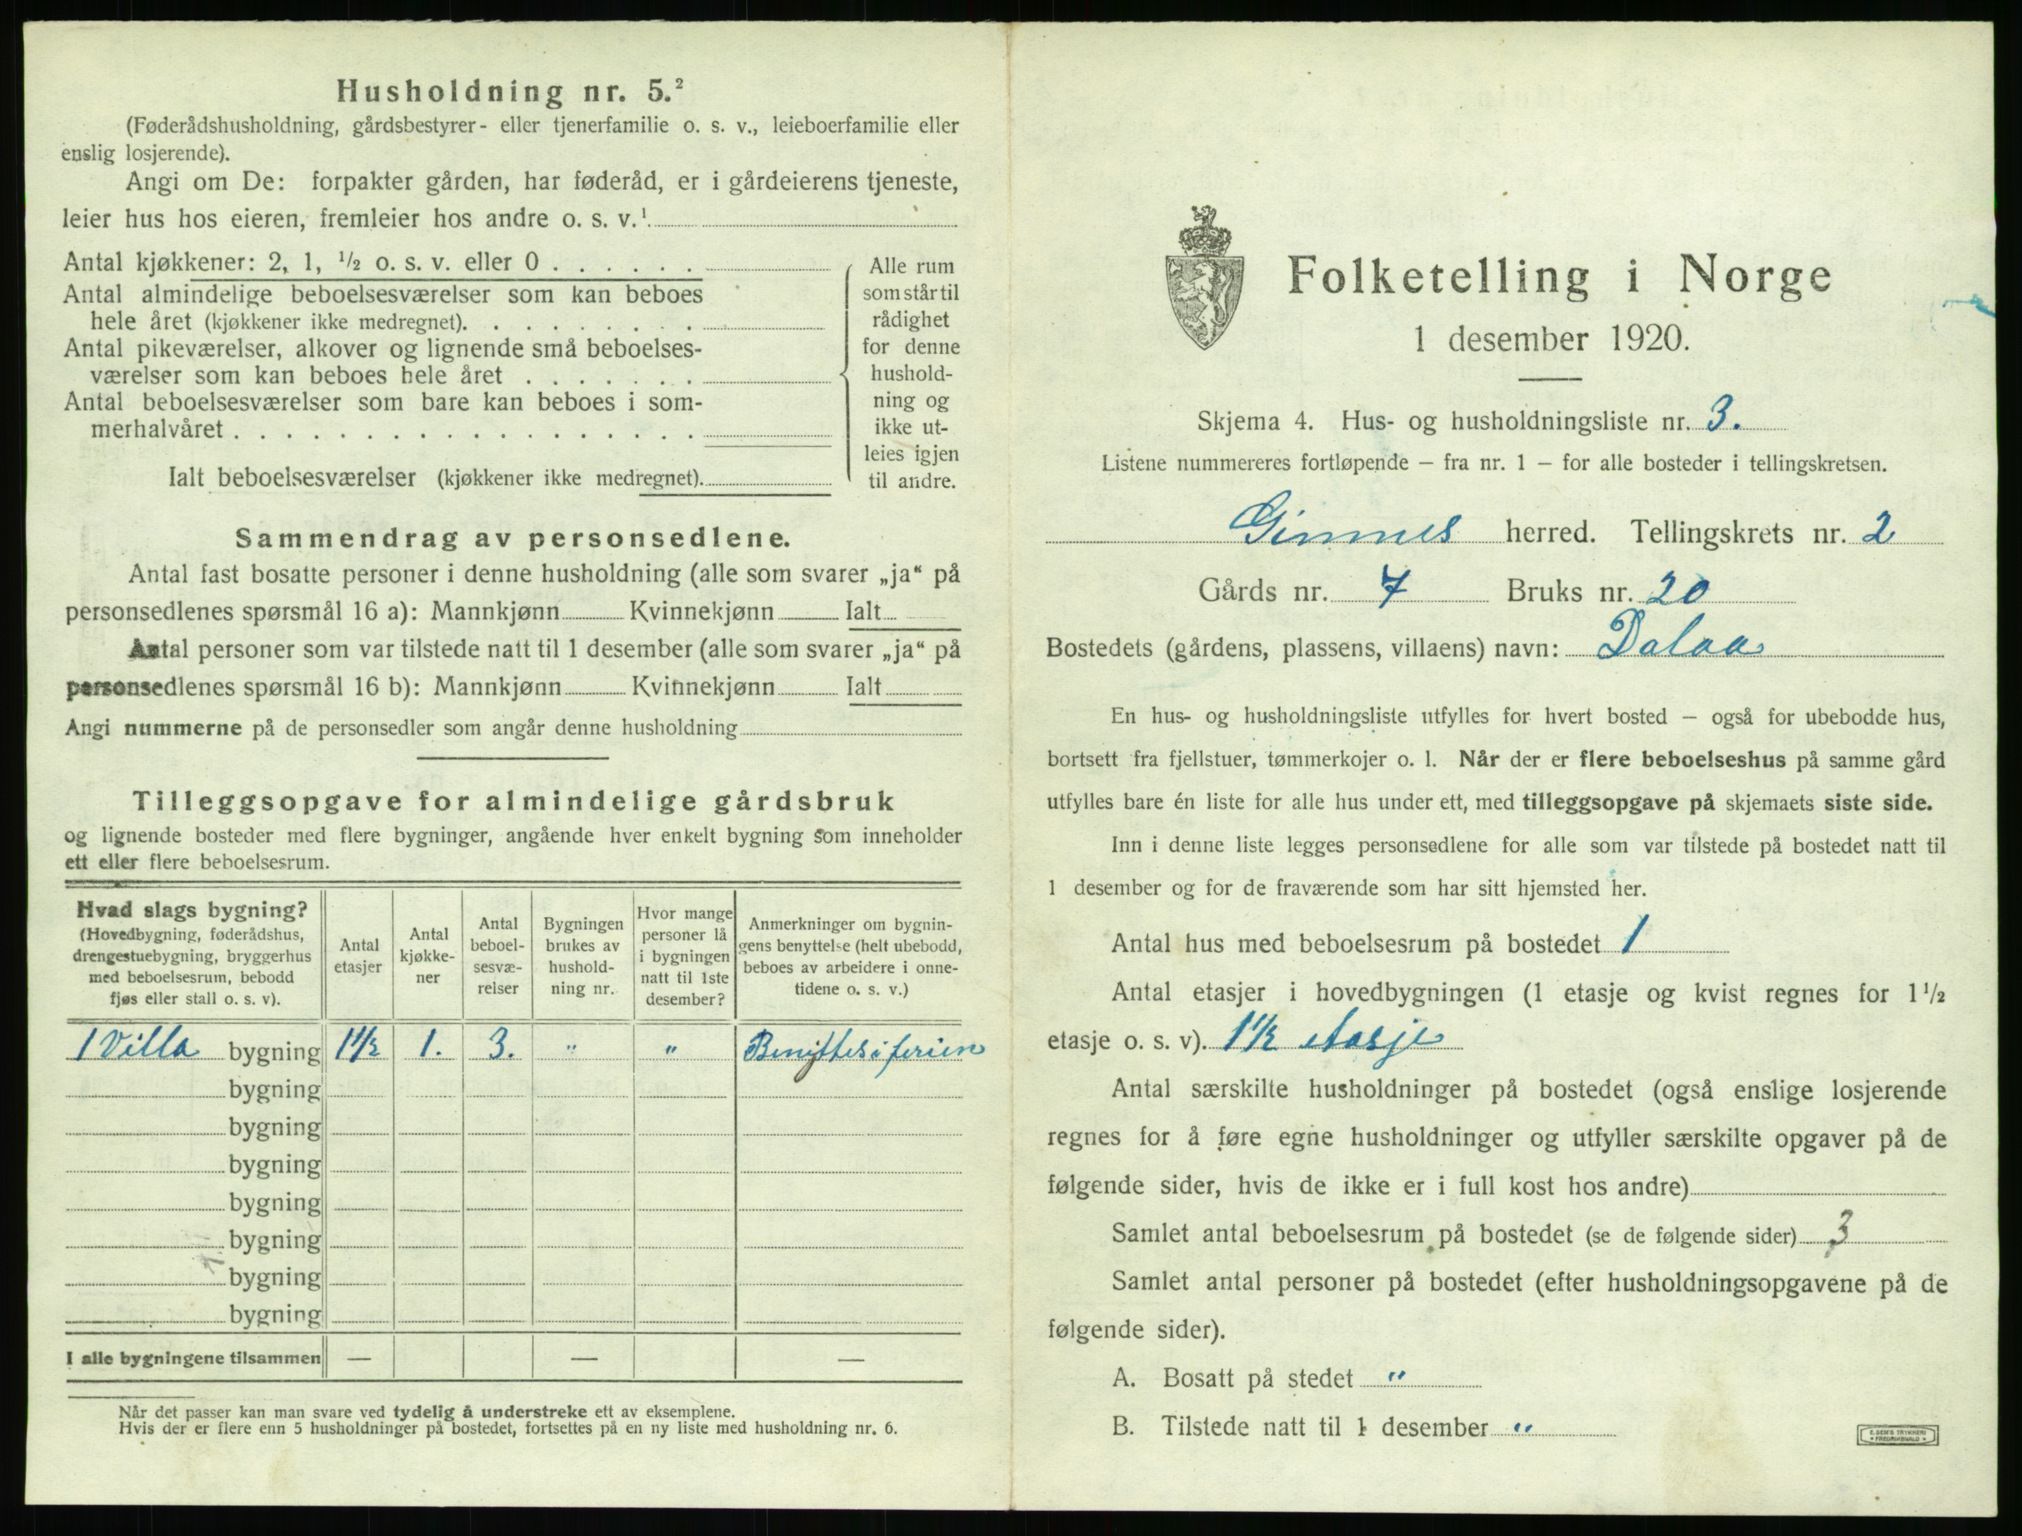 Husholdning nr. 5.²
(Føderådshusholdning, gårdsbestyrer- eller tjenerfamilie o. s. v., leieboerfamilie eller
enslig losjerende).
Angi om De: forpakter gården, har føderåd, er i gårdeierens tjeneste,
leier hus hos eieren, fremleier hos andre o. s. v.¹
Antal kjøkkener: 2, 1, ½ o. s. v. eller 0 . . . . . .
Antal almindelige beboelsesværelser som kan beboes
hele året (kjøkkener ikke medregnet). . . . . . . . . .
Antal pikeværelser, alkover og lignende små beboelses-
værelser som kan beboes hele året . . . . . . .
Antal beboelsesværelser som bare kan beboes i som-
merhalvåret . . . . . . . . . . . . . . . . . .
Ialt beboelsesværelser (kjøkkener ikke medregnet).
Alle rum
som står til
rådighet
for denne
hushold-
ning og
ikke ut-
leies igjen
til andre.
Sammendrag av personsedlene.
Antal fast bosatte personer i denne husholdning (alle som svarer „ja“ på
personsedlenes spørsmål 16 a): Mannkjønn Kvinnekjønn Ialt
Antal personer som var tilstede natt til 1 desember (alle som svarer „ja“ på
personsedlenes spørsmål 16 b): Mannkjønn Kvinnekjønn Ialt
Angi nummerne på de personsedler som angår denne husholdning
Tilleggsopgave for almindelige gårdsbruk
og lignende bosteder med flere bygninger, angående hver enkelt bygning som inneholder
ett eller flere beboelsesrum.
Hvad slags bygning?
(Hovedbygning, føderådshus,
drengestuebygning, bryggerhus
med beboelsesrum, bebodd
fjøs eller stall o. s. v).
Antal
etasjer
Antal
kjøkke-
ner
Antal
beboel-
sesvæ-
relser
Bygningen
brukes av
hushold-
ning nr.
Hvor mange
personer lå
i bygningen
natt til 1ste
desember?
Anmerkninger om bygnin-
gens benyttelse (helt ubebodd,
beboes av arbeidere i onne-
tidene o. s. v.)
1 Villa bygning 1½ 1. 3. " " Benyttes i ferien
bygning
bygning
bygning
bygning
bygning
bygning
bygning
I alle bygningene tilsammen — — —
Når det passer kan man svare ved tydelig å understreke ett av eksemplene.
Hvis der er flere enn 5 husholdninger på bostedet, fortsettes på en ny liste med husholdning nr. 6.
Folketelling i Norge
1 desember 1920.
Skjema 4. Hus- og husholdningsliste nr. 3.
Listene nummereres fortløpende – fra nr. 1 – for alle bosteder i tellingskretsen.
Gimnes herred. Tellingskrets nr. 2
Gårds nr. 7 Bruks nr. 20
Bostedets (gårdens, plassens, villaens) navn: Dalaa
En hus- og husholdningsliste utfylles for hvert bosted – også for ubebodde hus,
bortsett fra fjellstuer, tømmerkojer o. l. Når der er flere beboelseshus på samme gård
utfylles bare én liste for alle hus under ett, med tilleggsopgave på skjemaets siste side.
Inn i denne liste legges personsedlene for alle som var tilstede på bostedet natt til
1 desember og for de fraværende som har sitt hjemsted her.
Antal hus med beboelsesrum på bostedet 1
Antal etasjer i hovedbygningen (1 etasje og kvist regnes for 1½
etasje o. s. v). 1½ etasje
Antal særskilte husholdninger på bostedet (også enslige losjerende
regnes for å føre egne husholdninger og utfyller særskilte opgaver på de
følgende sider, hvis de ikke er i full kost hos andre)
Samlet antal beboelsesrum på bostedet (se de følgende sider) 3
Samlet antal personer på bostedet (efter husholdningsopgavene på de
følgende sider).
A. Bosatt på stedet "
B. Tilstede natt til 1 desember "
E. SEM'S TRYKKERI
FREDRIKSHALD